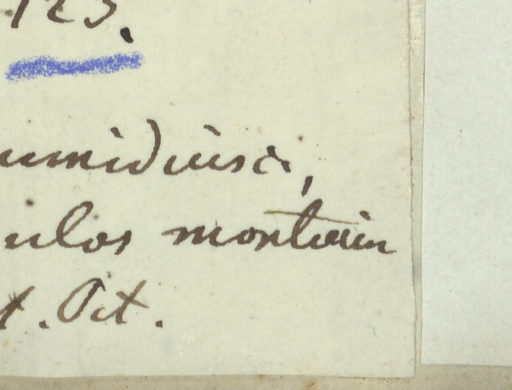 123.
umidiusc.,
ulos montium
t. Oct.